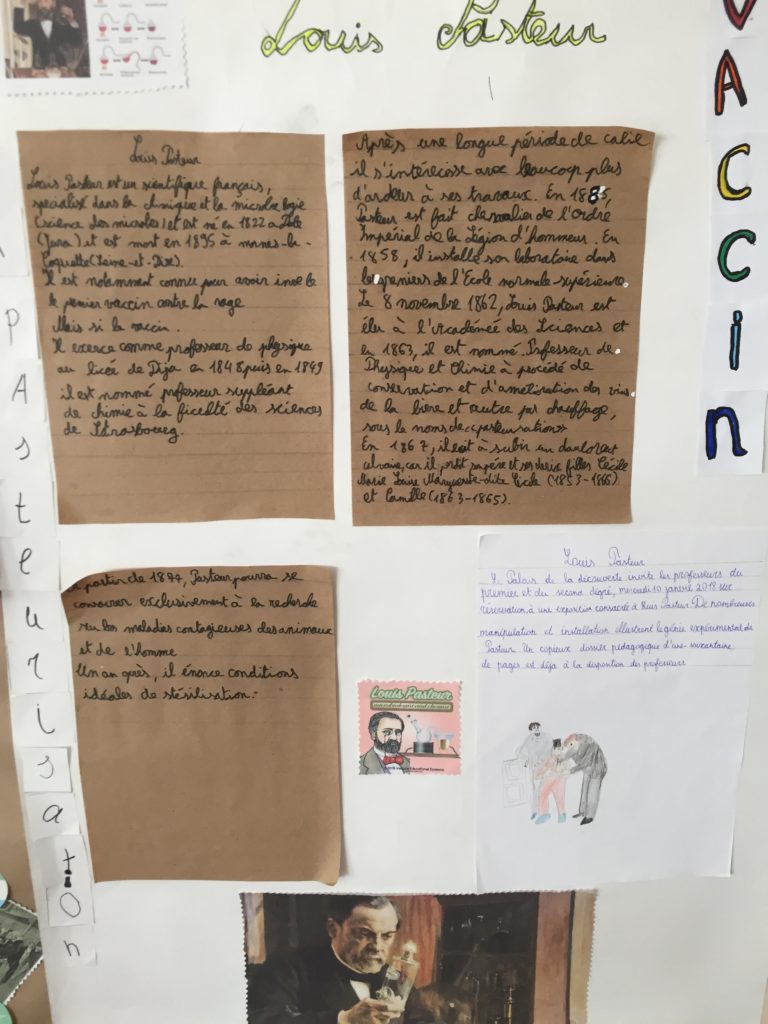 Louis Pasteur
Vaccin
Pasteurisation
Louis Pasteur
Louis Pasteur est un scientifique français,
spécialisé dans la chimique et la microbe logie
(science des microbes) et est né en 1822 a Dole
(Jura) et est mort en 1895 à
Coquette (Seine-et-Oise).
Il est notamment connue pour avoir
le premier vaccin contre la rage
Mais si le vaccin.
Il exerce comme professeur de physique
au licée de Dija en 1848 puis en 1849
il est nommé professeur suppléant
de chimie à la ficulté des sciences
de Strasbourg.
Après une longue période de
il s'intérecisse avec beaucoup plus
d'ardeur à ses travaux. En
Pasteur est fait chevalier de l'Ordre
Impérial de la Légion d'hommeur. En
1858, il installe son laboratoire dans
les greniers de l'Ecole normale supérieure.
Le 8 novembre 1862, Louis Pasteur est
élu à l'Académéé des Sciences et
en 1863, il est nommé Professeur de
Physique et Chimie à procédé de
conservation et d'amélioration des vins
de la biere et autre par chauffage,
sous le noms de <<pasteurisation>>
En 1867, il à subir un
car il et ses deux filles Cécile
Marie Marguerite-dite (1853-1866)
et Camille (1863-1865).
A partir de 1877, Pasteur pourra se
consacrer exclusivement à la recherche
sur les maladies contagieuses des animaux
et de l'homme
Un an après, il énonce conditions
idéales de stérilisation.
Louis Pasteur
Le Palais de la découverte invite les professeurs du
premier et du second dégré, mercredi 10 janvier 2018 sur
reservation à une consacrée à Pasteur. De nombreuses
manipulation et installation illustrent le génie expérimental de
Pasteur. Un copieux dossier pédagogique d'une soixantaine
de pages est déja à la disposition des professeurs
Louis Pasteur